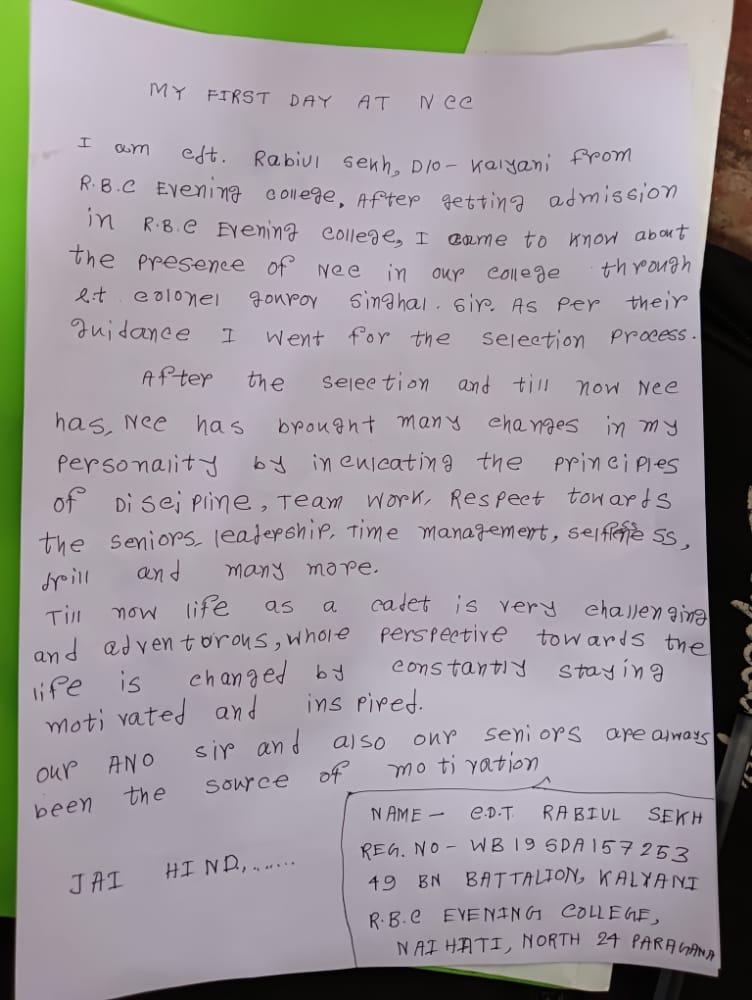 MY FIRST DAY AT NCC
I am cdt. Rabiul Sekh, D/O - Kalyani from
R.B.C Evening college, After getting admission
in R.B.C Evening college, I came to know about
the presence of NCC in our college through
Lt. colonel gourov Singhal. Sir. As per their
guidance I went for the selection process.
After the selection and till now NCC
has, NCC has brought many changes in my
personality by inculcating the principles
of Discipline, Team work, Respect towards
the seniors, leadership, Time management,
drill and many more.
Till now life as a cadet is very challenging
and adventorous, whole perspective towards the
life is changed by constantly staying
motivated and inspired.
our ANO sir and also our seniors are always
been the source of motivation
JAI HIND,......
NAME - C.D.T. RABIUL SEKH
REG. NO - WB19SDA157253
49 BN BATTALION, KALYANI
R.B.C EVENING COLLEGE,
NAIHATI, NORTH 24 PARAGANA